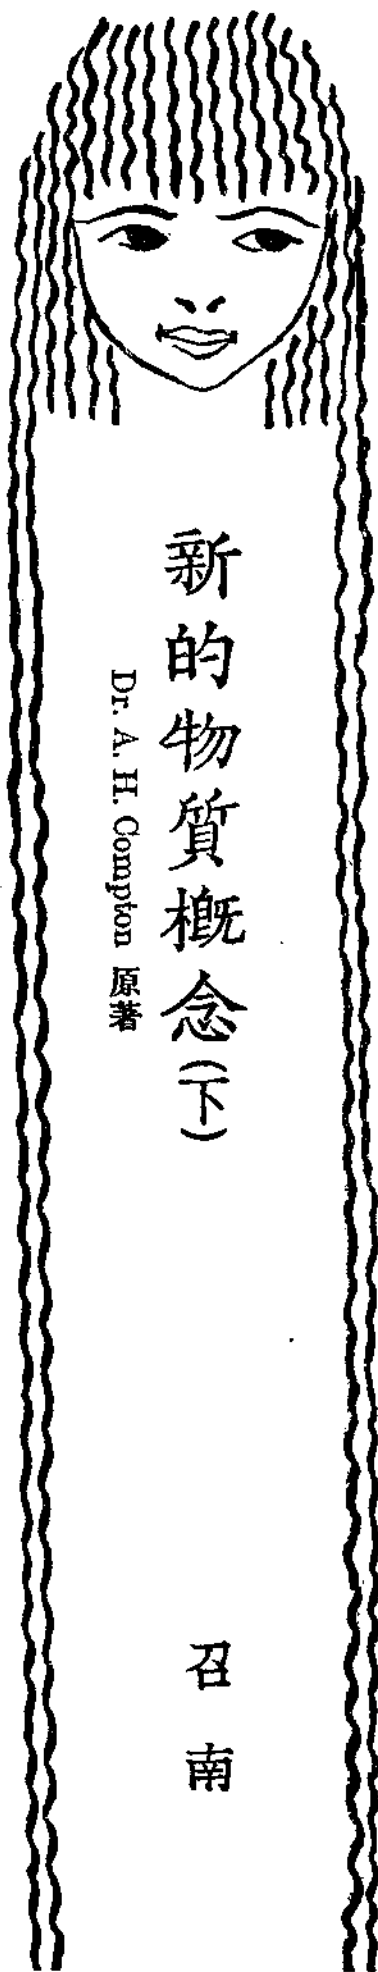 新的物質槪念(下)
Dr. A. H. Compton 原著
召南